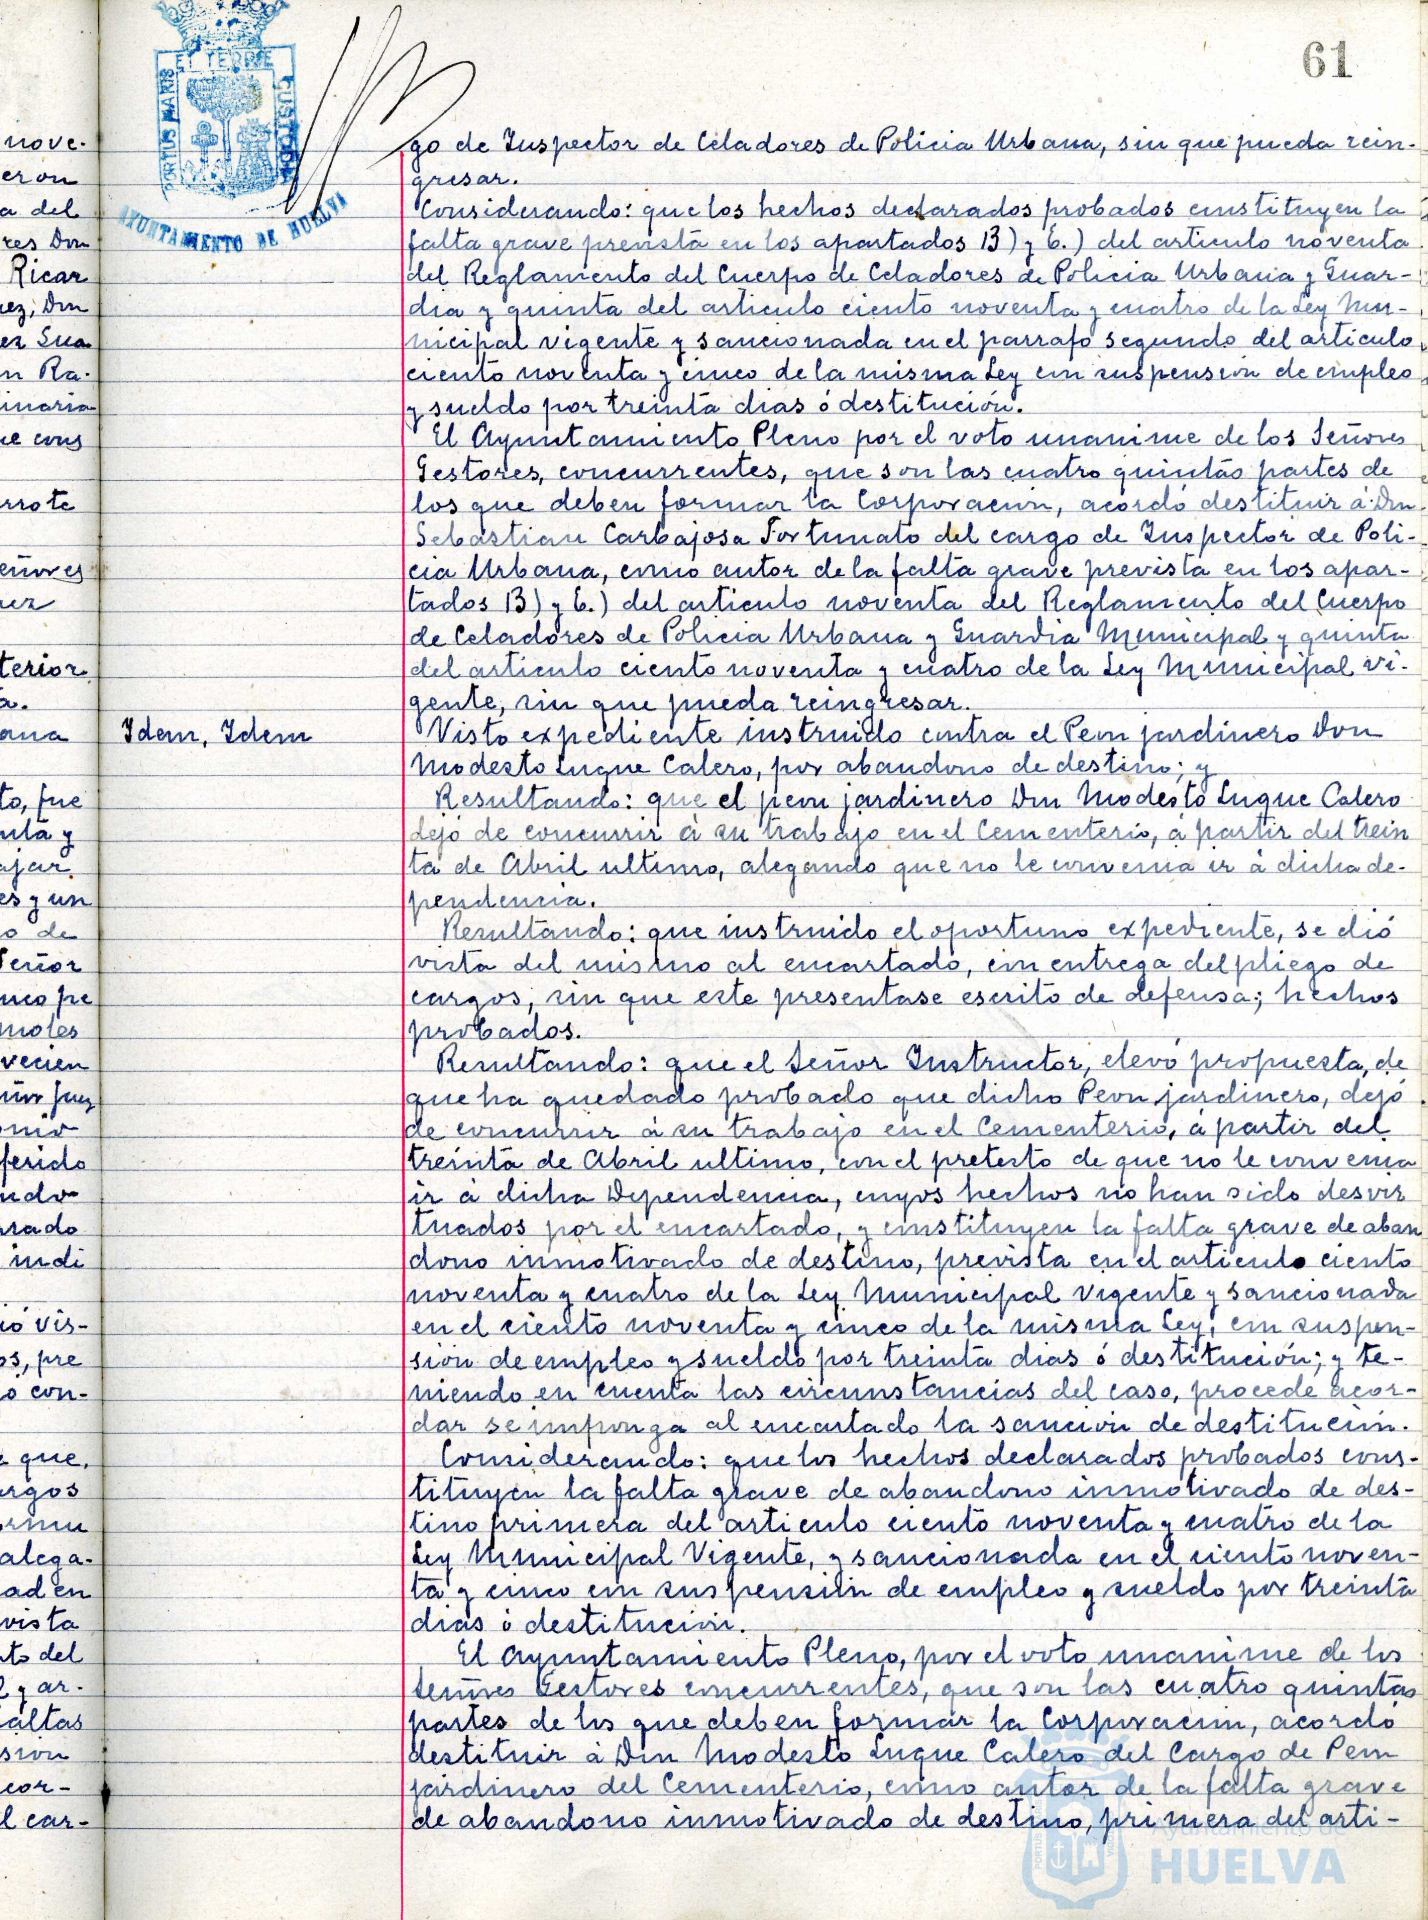 61
PORTUS MARIS ET TERRE CUSTODIA
AYUNTAMIENTO DE HUELVA
go de Inspector de Celadores de Policia Urbana, sin que pueda rein-
gresar.
Considerando: que los hechos declarados probados constituyen la
falta grave prevista en los apartados B) y E.) del articulo noventa
del Reglamento del Cuerpo de Celadores de Policia Urbana y Guar-
dia y quinta del articulo ciento noventa y cuatro de la Ley Mu-
nicipal vigente y sancionada en el parrafo segundo del articulo
ciento noventa y cinco de la misma Ley con suspension de empleo
y sueldo por treinta dias ó destitución.
El Ayuntamiento Pleno por el voto unanime de los Señores
Gestores, concurrentes, que son las cuatro quintas partes de
los que deben formar la Corporación, acordó destituir á Don
Sebastian Carbajosa Fortunato del cargo de Inspector de Poli-
cia Urbana, como autor de la falta grave prevista en los apar-
tados B) y E.) del articulo noventa del Reglamento del Cuerpo
de Celadores de Policia Urbana y Guardia Municipal y quinta
del articulo ciento noventa y cuatro de la Ley Municipal vi-
gente, sin que pueda reingresar.
Idem, Idem
Visto expediente instruido contra el Peon jardinero Don
Modesto Luque Calero, por abandono de destino; y
Resultando: que el peon jardinero Don Modesto Luque Calero
dejó de concurrir á su trabajo en el Cementerio, á partir del trein
ta de Abril ultimo, alegando que no le convenia ir á dicha de-
pendencia.
Resultando: que instruido el oportuno expediente, se dió
vista del mismo al encartado, con entrega del pliego de
cargos, sin que este presentase escrito de defensa; hechos
probados.
Resultando: que el Señor Instructor, elevó propuesta, de
que ha quedado probado que dicho Peon jardinero, dejó
de concurrir á su trabajo en el Cementerio, á partir del
treinta de Abril ultimo, con el pretesto de que no le convenia
ir á dicha Dependencia, cuyos hechos no han sido desvir
tuados por el encartado, y constituyen la falta grave de aban
dono inmotivado de destino, prevista en el articulo ciento
noventa y cuatro de la Ley Municipal vigente y sancionada
en el ciento noventa y cinco de la misma Ley, con suspen-
sión de empleo y sueldo por treinta dias ó destitución; y te-
niendo en cuenta las circunstancias del caso, procede acor-
dar se imponga al encartado la sanción de destitución.
Considerando: que los hechos declarados probados cons-
tituyen la falta grave de abandono inmotivado de des-
tino primera del articulo ciento noventa y cuatro de la
Ley Municipal Vigente, y sancionada en el ciento noven-
ta y cinco con suspensión de empleo y sueldo por treinta
dias ó destitución.
El Ayuntamiento Pleno, por el voto unanime de los
Señores Gestores concurrentes, que son las cuatro quintas
partes de los que deben formar la Corporación, acordó
destituir á Don Modesto Luque Calero del Cargo de Peon
jardinero del Cementerio, como autor de la falta grave
de abandono inmotivado de destino, primera del arti-
Ayuntamiento de
HUELVA